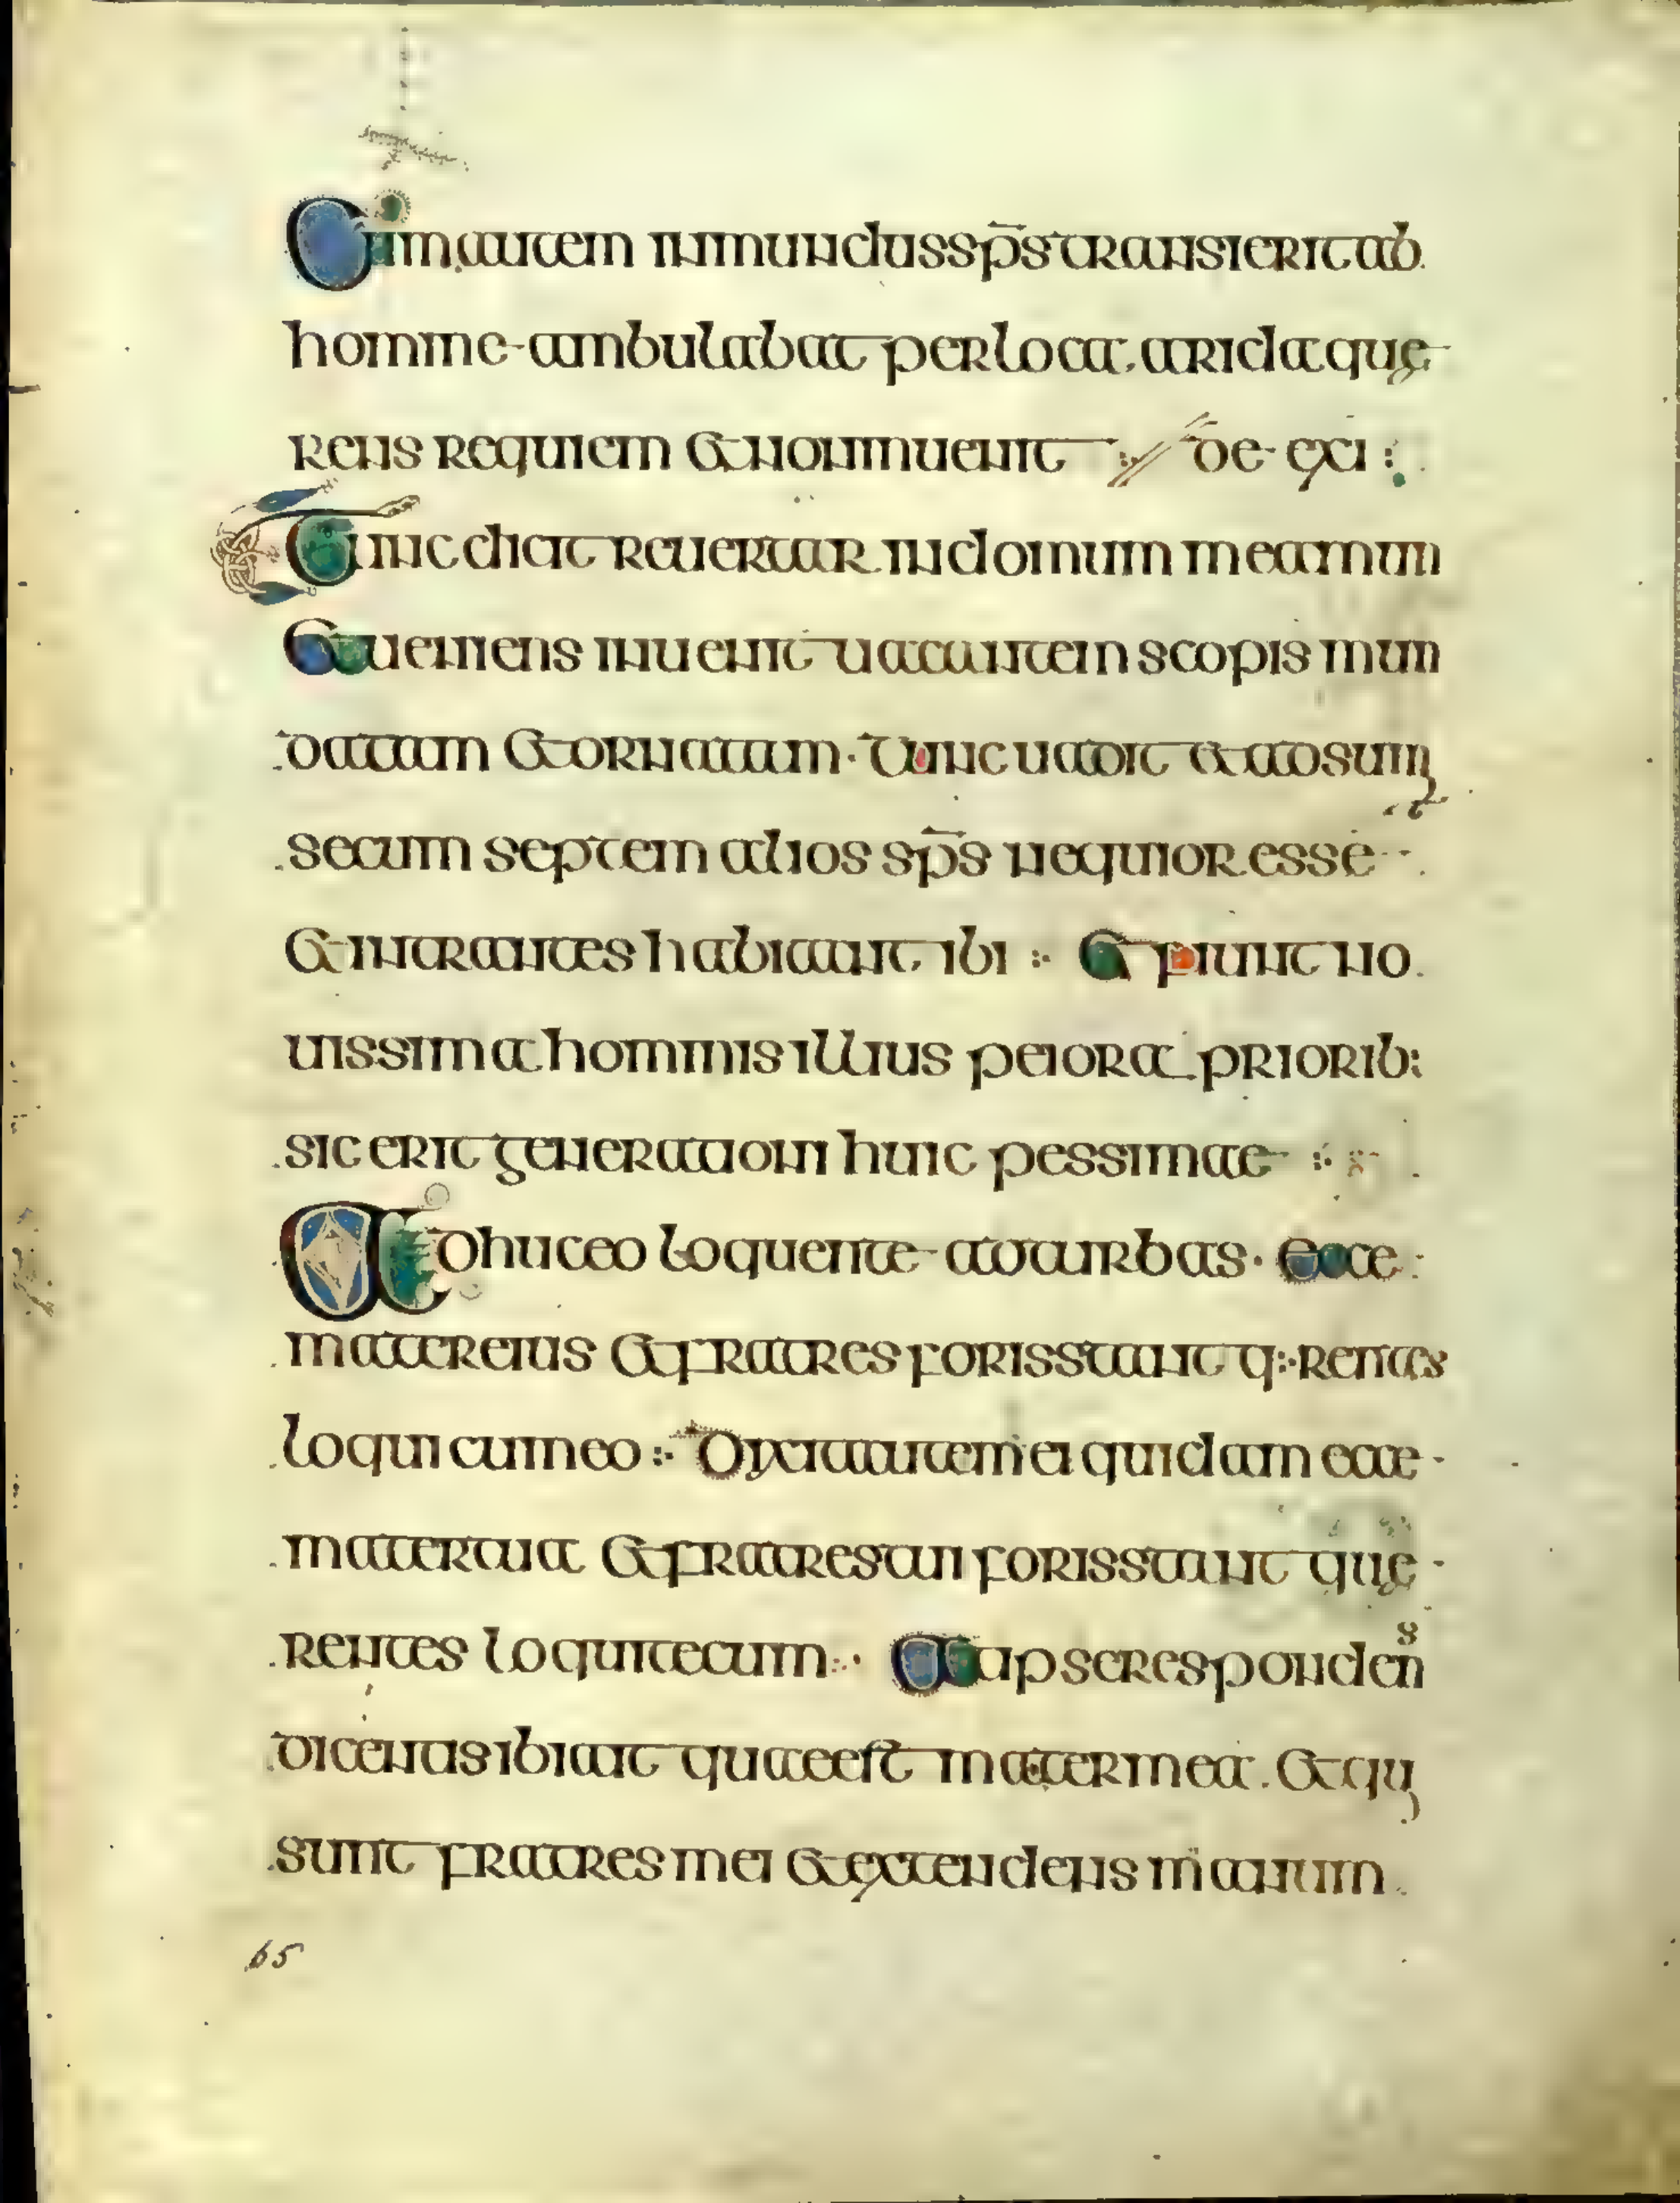 Cum autem inmundus sp̄s transierit ab
homine ambulabat per loca arida que
rens requiem et non inuenit de exi
Tunc dicit reuertar in domum meam un
Et ueniens inuenit uacantem scopis mun
datam et ornatam · Tunc uadit et adsum
secum septem alios sp̄s nequior esse
et intrantes habitant ibi : Et fiunt no
uissima hominis illius peiora priorib:
sic erit generationi huic pessimae
Adhuc eo loquente ad turbas · Ecce
mater eius et fratres foris stant q:rentes
loqui cum eo : Dixit autem ei quidam ecce
mater tua et fratres tui foris stant que
rentes loqui tecum : At ipse responden
s
dicenti sibi ait quae est mater mea . et qui
sunt fratres mei et extendens manum
65